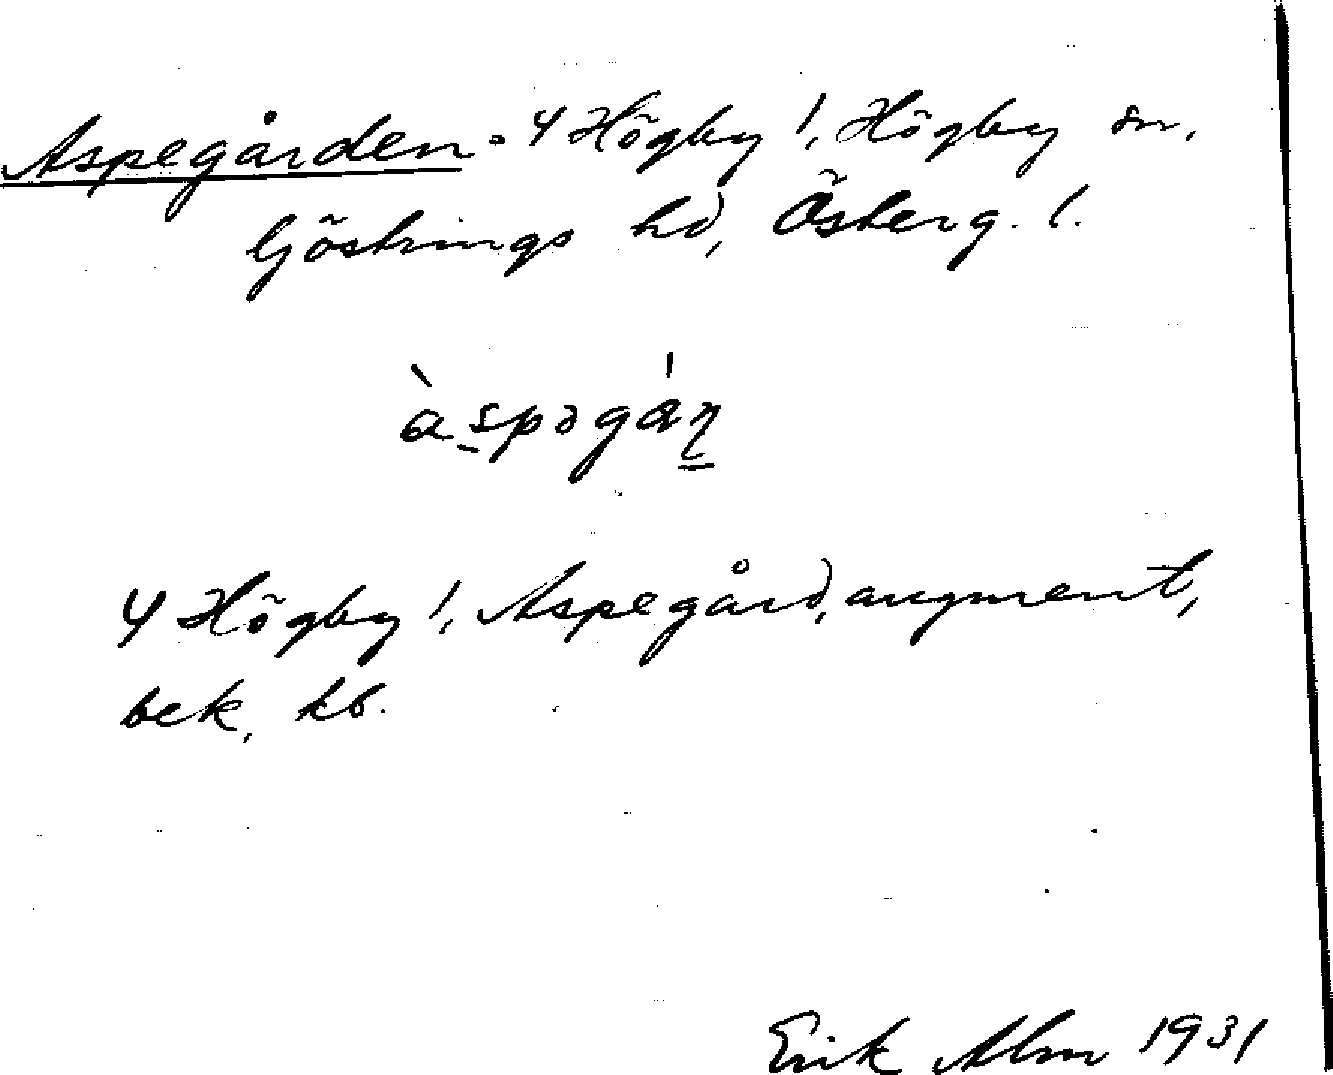 Aspegården = 4 Högby 1, Högby sn,
Göstrings hd, Österg. l.
àspəgán
4 Högby 1, Aspegård, augment,
bek, kb.
Erik Alm 1931